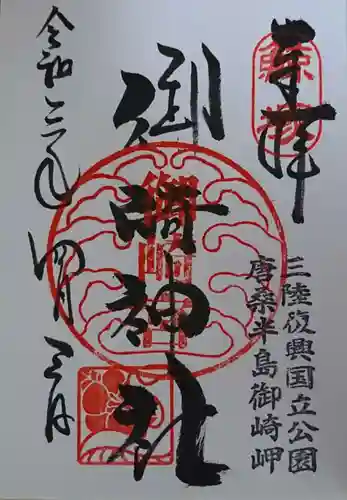 奉拝
三陸復興国立公園
唐桑半島御崎岬
御崎神社
令和三年
四月三日